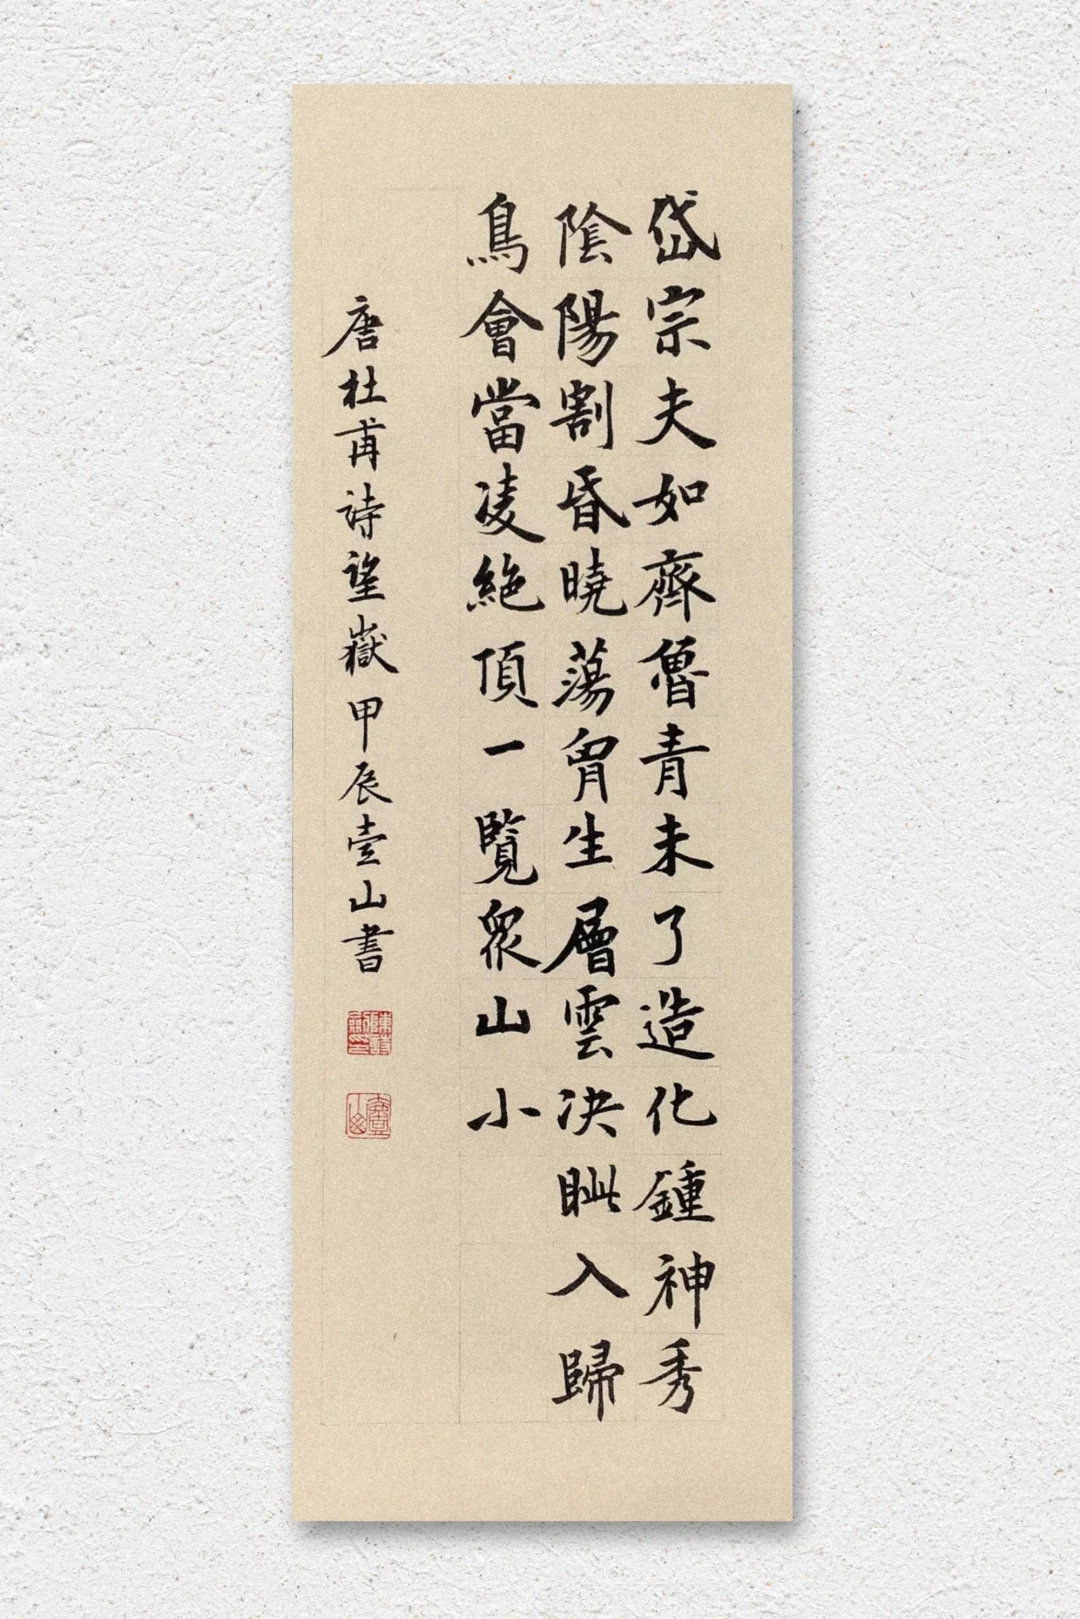 岱宗夫如齊魯青未了造化鍾神秀
陰陽割昏曉蕩胷生層雲決眦入歸
鳥會當凌絕頂一覽眾山小
唐杜甫詩望嶽甲辰壹山書